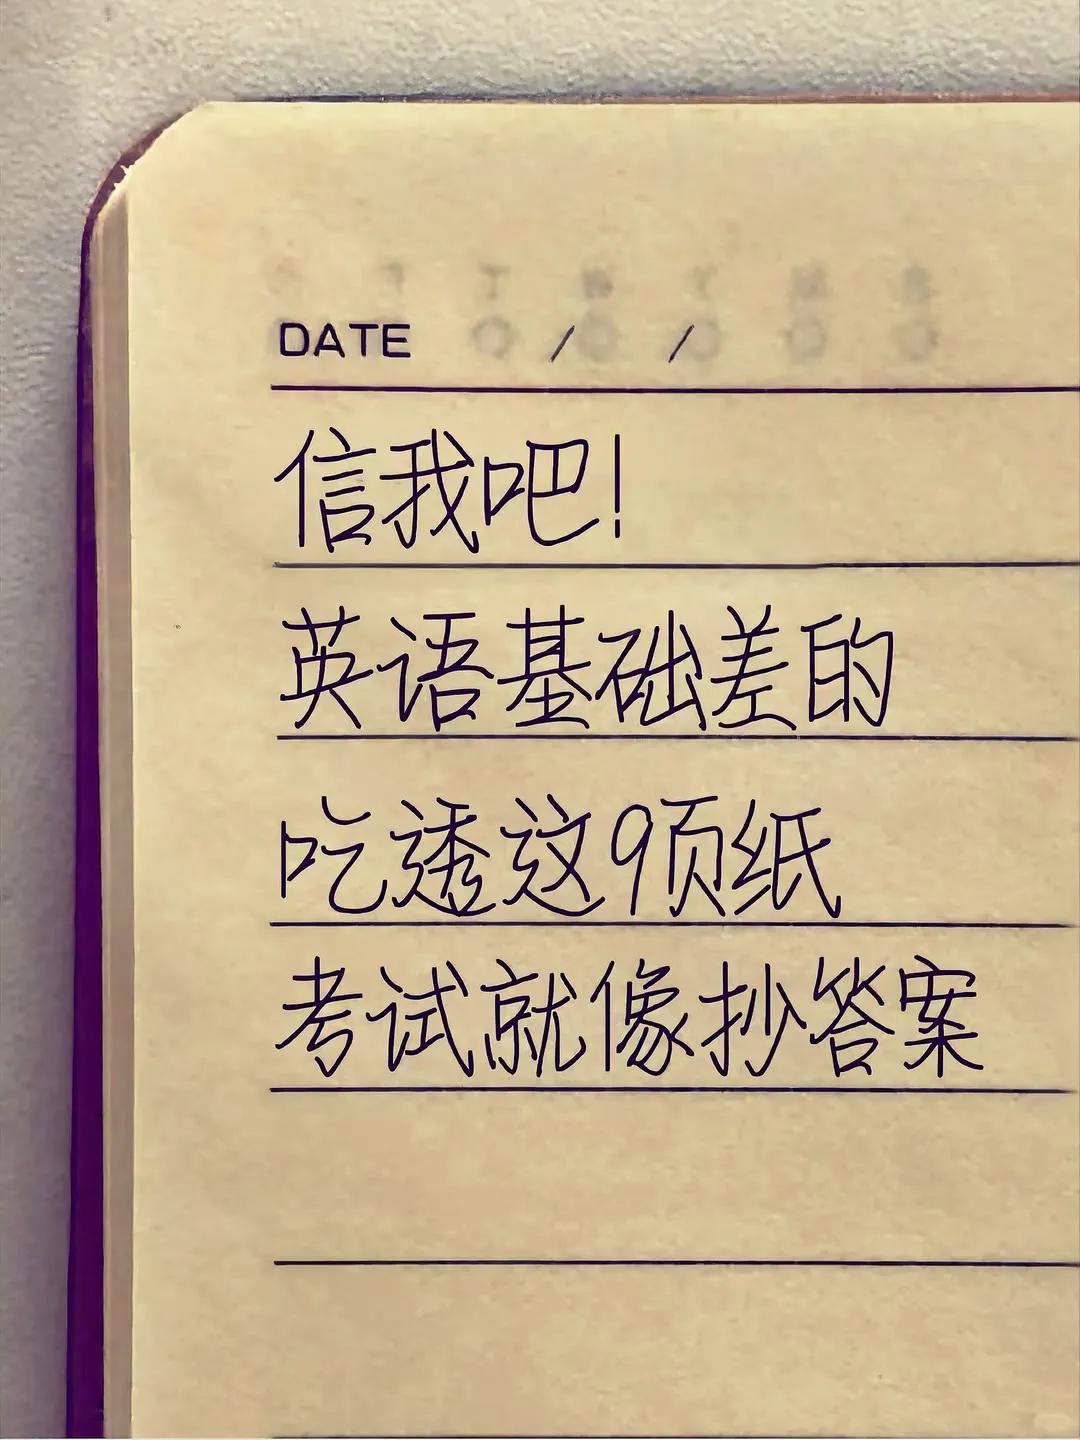 DATE / /
信我吧!
英语基础差的
吃透这9页纸
考试就像抄答案